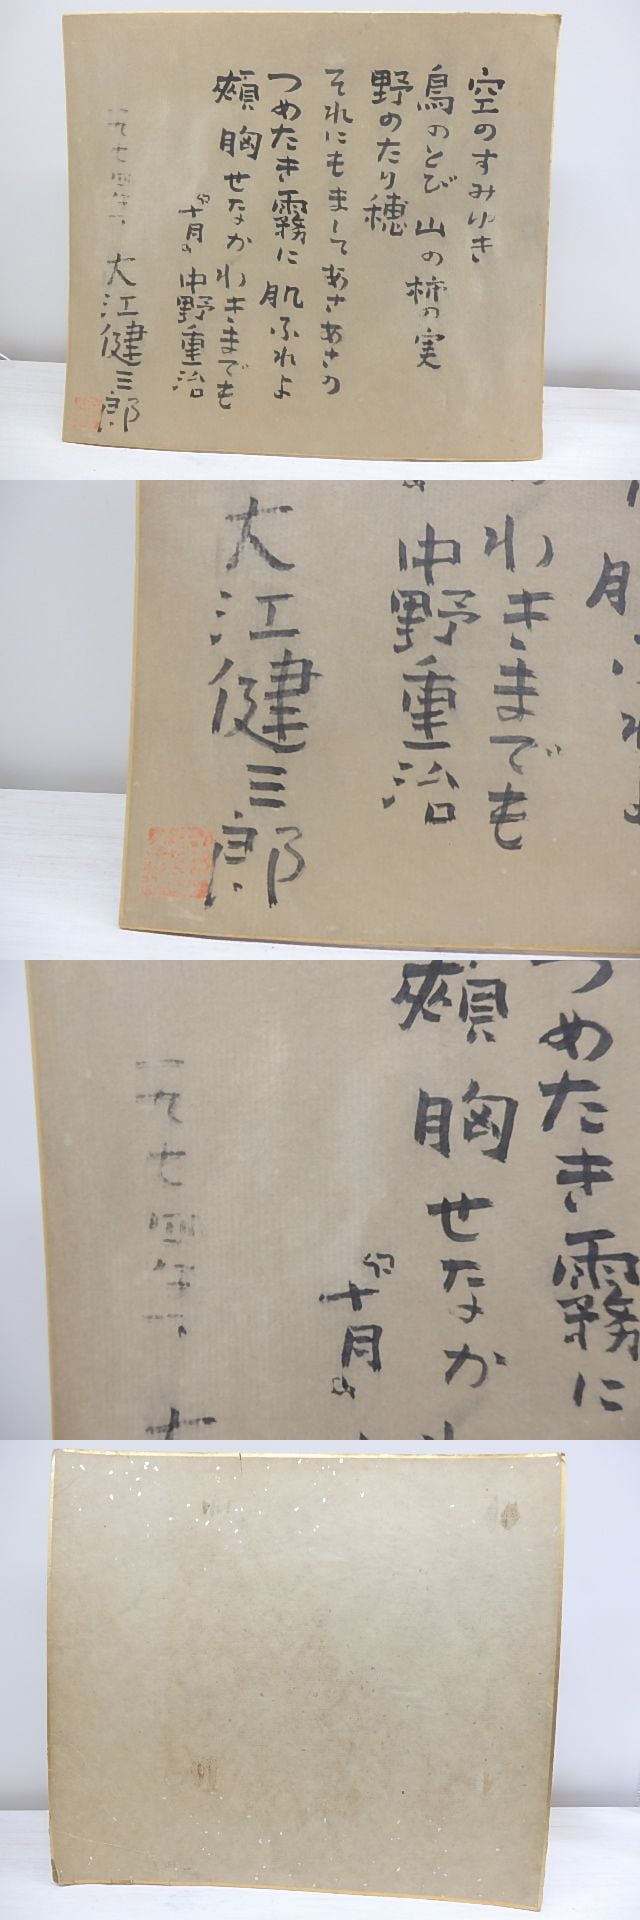 空のすみゆき
鳥のとび 山の柿の実
野のたり穂
それにもましてあさあさの
つめたき霧に 肌ふれよ
頬 胸 せなか わきまでも
“十月” 中野重治
一九七四年
大江健三郎
大江健三郎
わきまでも
中野重治
肌ふれよ
つめたき霧に
頬 胸 せなか
“十月”
一九七四年
大